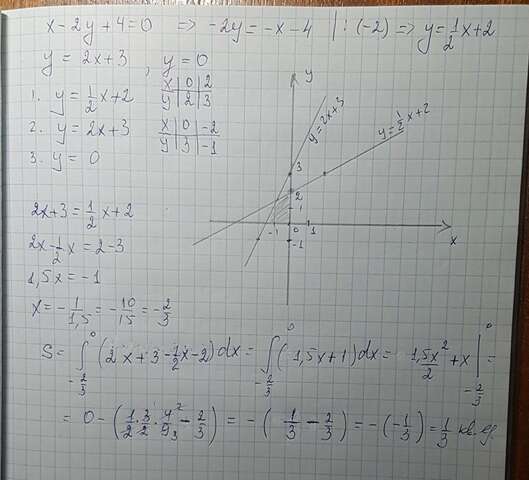 x - 2y + 4 = 0 => -2y = -x - 4 | : (-2) => y = 1/2 x + 2
y = 2x + 3 , y = 0
1. y = 1/2 x + 2 x | 0 | 2
y | 2 | 3
2. y = 2x + 3 x | 0 | -2
y | 3 | -1
3. y = 0
y
y = 2x + 3
y = 1/2 x + 2
3
2
1
-1 0 1
-1
x
2x + 3 = 1/2 x + 2
2x - 1/2 x = 2 - 3
1,5x = -1
x = - 1/1,5 = - 10/15 = - 2/3
S = ∫ 0 -2/3 (2x + 3 - 1/2 x - 2) dx = ∫ 0 -2/3 (1,5x + 1) dx = 1,5x²/2 + x | 0 -2/3 =
= 0 - (1/2 · 3/2 · 4/9 - 2/3) = - (1/3 - 2/3) = - (- 1/3) = 1/3 кв. ед.